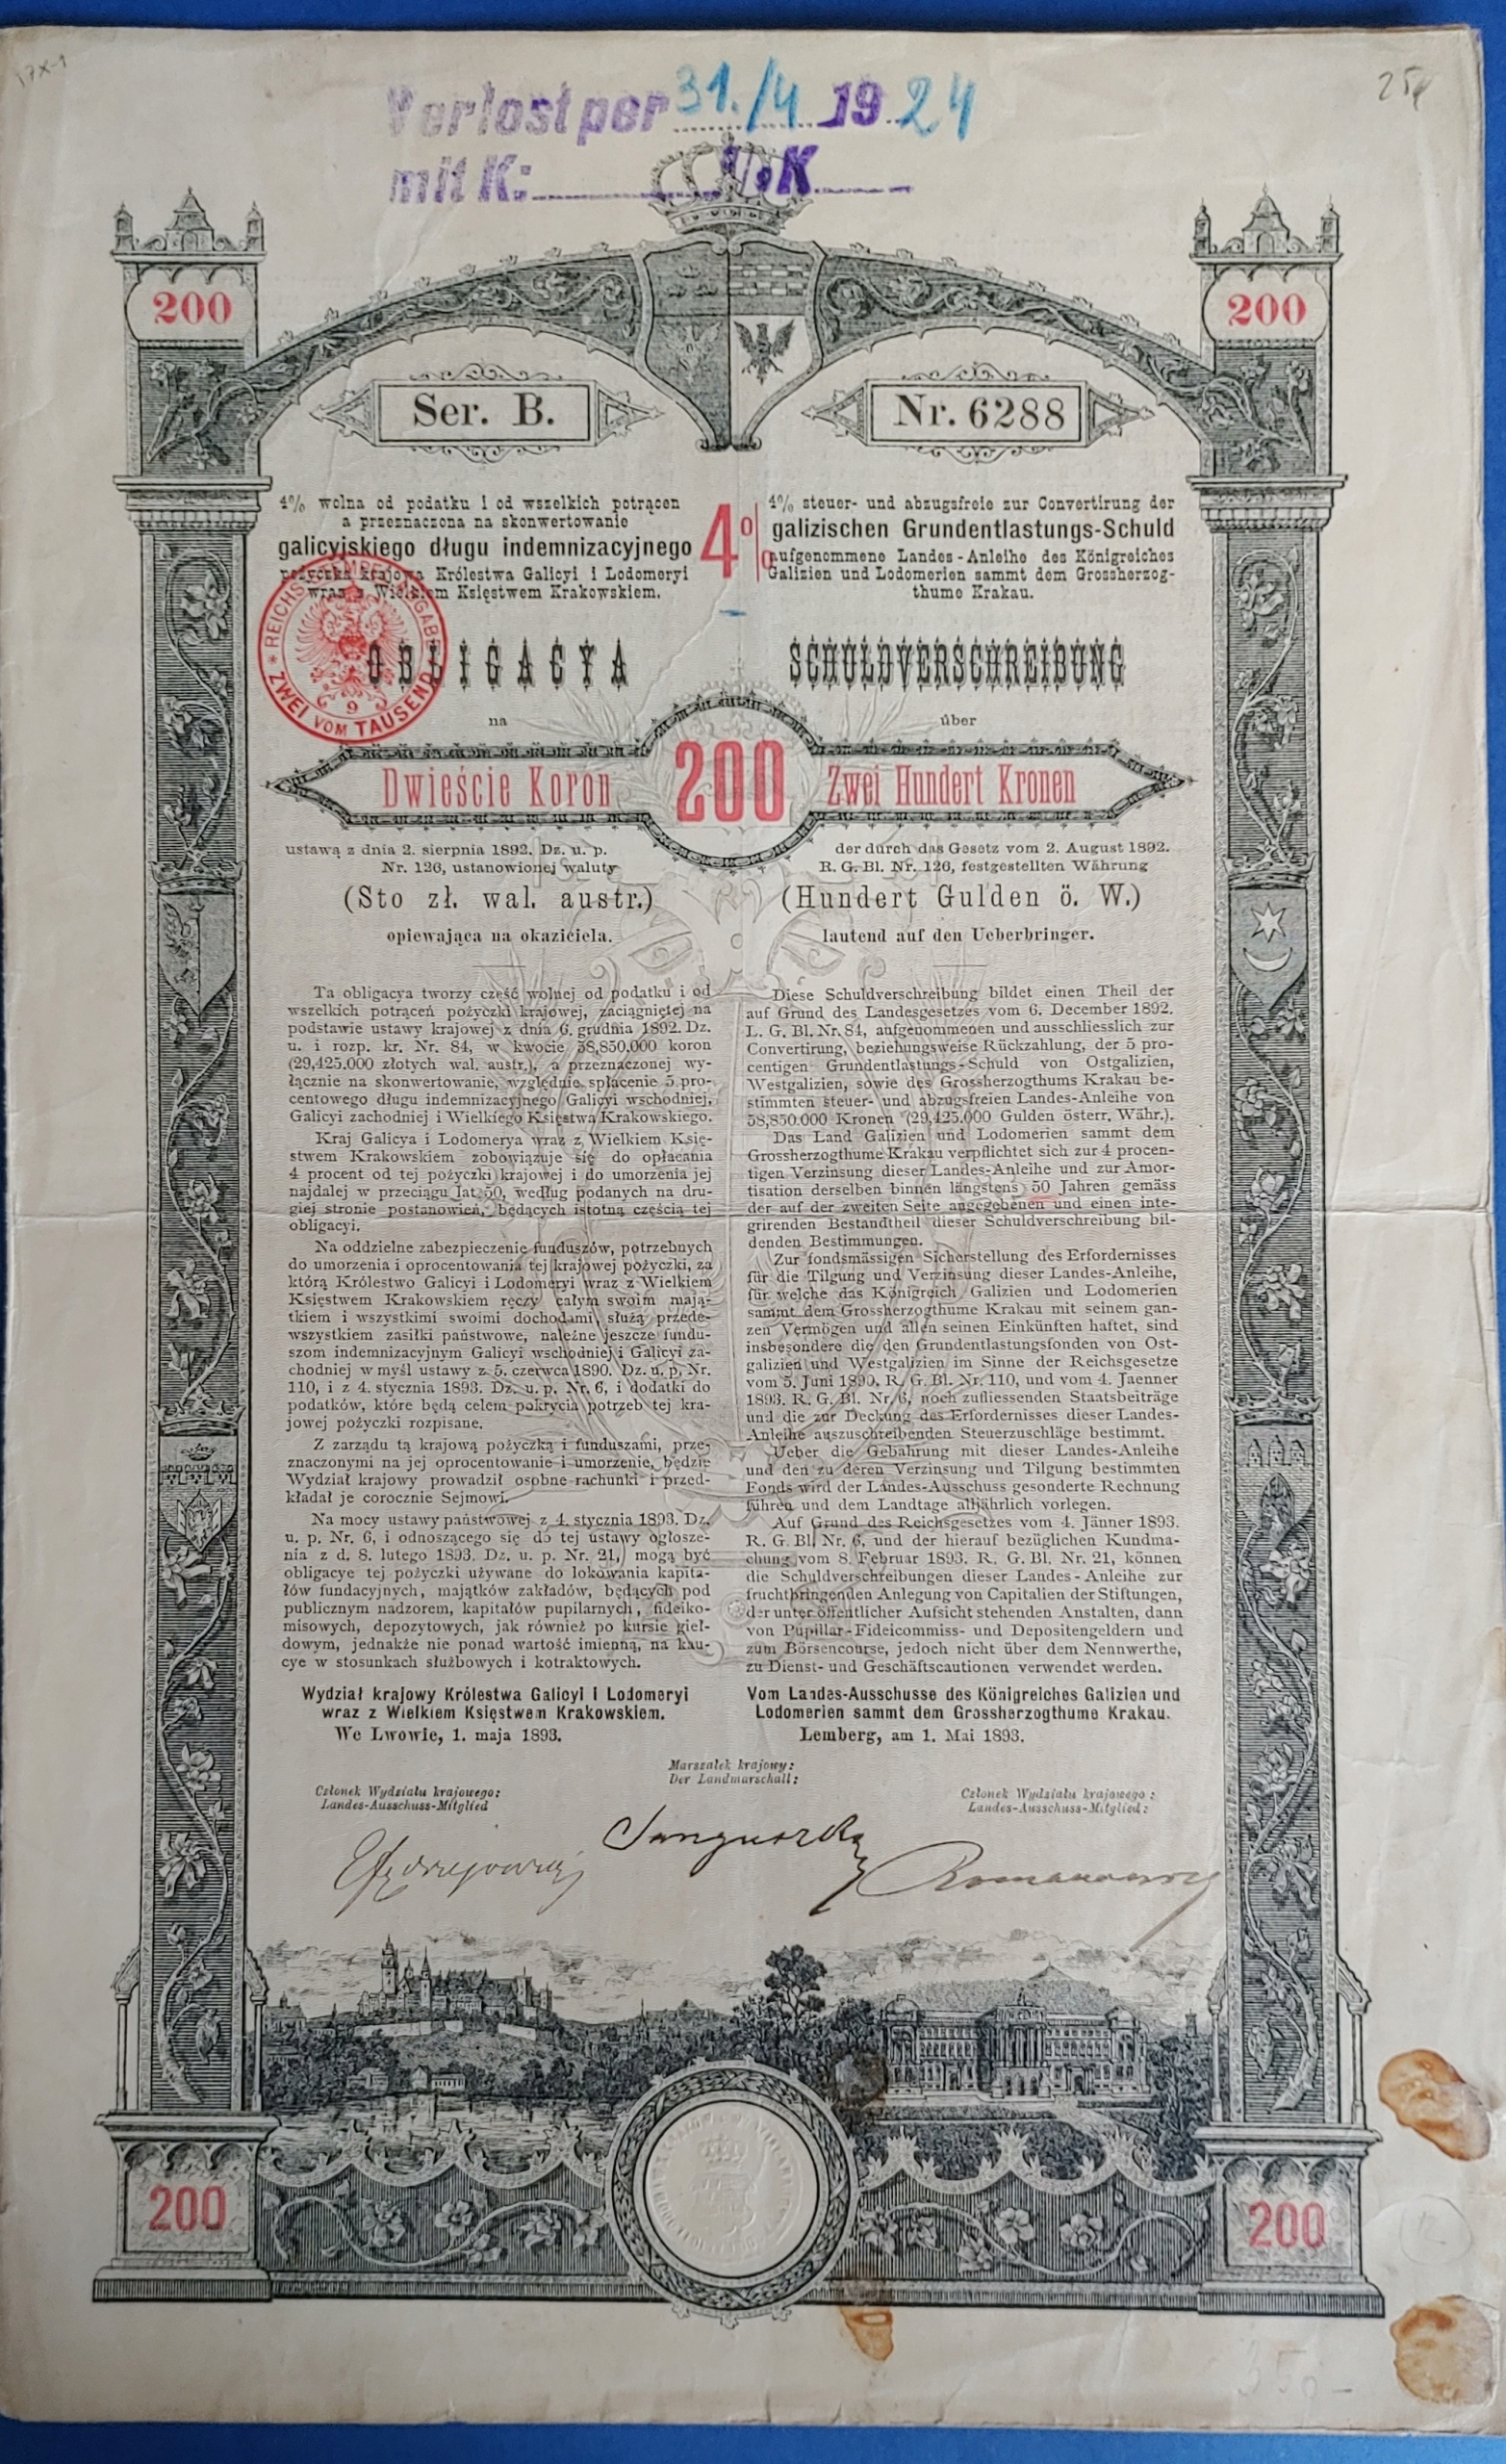 Verlost per 31./4 1924
mit K:
200
200
Ser. B.
Nr. 6288
4% wolna od podatku i od wszelkich potrąceń
a przeznaczona na skonwertowanie
galicyjskiego długu indemnizacyjnego
pożyczka krajowa Królestwa Galicyi i Lodomeryi
wraz z Wielkiem Księstwem Krakowskiem.
4%
4% steuer- und abzugsfreie zur Convertirung der
galizischen Grundentlastungs-Schuld
aufgenommene Landes-Anleihe des Königreiches
Galizien und Lodomerien sammt dem Grossherzog-
thume Krakau.
REICHSSTEMPELABGABE
ZWEI VOM TAUSEND
9
OBLIGACYA
na
SCHULDVERSCHREIBUNG
über
Dwieście Koron
200
Zwei Hundert Kronen
ustawą z dnia 2. sierpnia 1892. Dz. u. p.
Nr. 126, ustanowionej waluty
(Sto zł. wal. austr.)
opiewająca na okaziciela.
der durch das Gesetz vom 2. August 1892.
R. G. Bl. Nr. 126, festgestellten Währung
(Hundert Gulden ö. W.)
lautend auf den Ueberbringer.
Ta obligacya tworzy część wolnej od podatku i od
wszelkich potrąceń pożyczki krajowej, zaciągniętej na
podstawie ustawy krajowej z dnia 6. grudnia 1892. Dz.
u. i rozp. kr. Nr. 84, w kwocie 58,850.000 koron
(29,425.000 złotych wal. austr.), a przeznaczonej wy-
łącznie na skonwertowanie, względnie spłacenie 5 pro-
centowego długu indemnizacyjnego Galicyi wschodniej,
Galicyi zachodniej i Wielkiego Księstwa Krakowskiego.
Kraj Galicya i Lodomerya wraz z Wielkiem Księ-
stwem Krakowskiem zobowiązuje się do opłacania
4 procent od tej pożyczki krajowej i do umorzenia jej
najdalej w przeciągu lat 50, według podanych na dru-
giej stronie postanowień, będących istotną częścią tej
obligacyi.
Na oddzielne zabezpieczenie funduszów, potrzebnych
do umorzenia i oprocentowania tej krajowej pożyczki, za
którą Królestwo Galicyi i Lodomeryi wraz z Wielkiem
Księstwem Krakowskiem ręczy całym swoim mają-
tkiem i wszystkimi swoimi dochodami, służą przede-
wszystkiem zasiłki państwowe, należne jeszcze fundu-
szom indemnizacyjnym Galicyi wschodniej i Galicyi za-
chodniej w myśl ustawy z 5. czerwca 1890. Dz. u. p. Nr.
110, i z 4. stycznia 1893. Dz. u. p. Nr. 6, i dodatki do
podatków, które będą celem pokrycia potrzeb tej kra-
jowej pożyczki rozpisane.
Z zarządu tą krajową pożyczką i funduszami, prze-
znaczonymi na jej oprocentowanie i umorzenie, będzie
Wydział krajowy prowadził osobne rachunki i przed-
kładał je corocznie Sejmowi.
Na mocy ustawy państwowej z 4. stycznia 1893. Dz.
u. p. Nr. 6, i odnoszącego się do tej ustawy ogłosze-
nia z d. 8. lutego 1893. Dz. u. p. Nr. 21, mogą być
obligacye tej pożyczki używane do lokowania kapita-
łów fundacyjnych, majątków zakładów, będących pod
publicznym nadzorem, kapitałów pupilarnych, fideiko-
misowych, depozytowych, jak również po kursie gieł-
dowym, jednakże nie ponad wartość imienną, na kau-
cye w stosunkach służbowych i kotraktowych.
Wydział krajowy Królestwa Galicyi i Lodomeryi
wraz z Wielkiem Księstwem Krakowskiem.
We Lwowie, 1. maja 1893.
Diese Schuldverschreibung bildet einen Theil der
auf Grund des Landesgesetzes vom 6. December 1892.
L. G. Bl. Nr. 84, aufgenommenen und ausschliesslich zur
Convertirung, beziehungsweise Rückzahlung, der 5 pro-
centigen Grundentlastungs-Schuld von Ostgalizien,
Westgalizien, sowie des Grossherzogthums Krakau be-
stimmten steuer- und abzugsfreien Landes-Anleihe von
58,850.000 Kronen (29,425.000 Gulden österr. Währ.).
Das Land Galizien und Lodomerien sammt dem
Grossherzogthume Krakau verpflichtet sich zur 4 procen-
tigen Verzinsung dieser Landes-Anleihe und zur Amor-
tisation derselben binnen längstens 50 Jahren gemäss
der auf der zweiten Seite angegebenen und einen inte-
grirenden Bestandtheil dieser Schuldverschreibung bil-
denden Bestimmungen.
Zur fondsmässigen Sicherstellung des Erfordernisses
für die Tilgung und Verzinsung dieser Landes-Anleihe,
für welche das Königreich Galizien und Lodomerien
sammt dem Grossherzogthume Krakau mit seinem gan-
zen Vermögen und allen seinen Einkünften haftet, sind
insbesondere die den Grundentlastungsfonden von Ost-
galizien und Westgalizien im Sinne der Reichsgesetze
vom 5. Juni 1890. R. G. Bl. Nr. 110, und vom 4. Jaenner
1893. R. G. Bl. Nr. 6, noch zufliessenden Staatsbeiträge
und die zur Deckung des Erfordernisses dieser Landes-
Anleihe auszuschreibenden Steuerzuschläge bestimmt.
Ueber die Gebahrung mit dieser Landes-Anleihe
und den zu deren Verzinsung und Tilgung bestimmten
Fonds wird der Landes-Ausschuss gesonderte Rechnung
führen und dem Landtage alljährlich vorlegen.
Auf Grund des Reichsgesetzes vom 4. Jänner 1893.
R. G. Bl. Nr. 6, und der hierauf bezüglichen Kundma-
chung vom 8. Februar 1893. R. G. Bl. Nr. 21, können
die Schuldverschreibungen dieser Landes-Anleihe zur
fruchtbringenden Anlegung von Capitalien der Stiftungen,
der unter öffentlicher Aufsicht stehenden Anstalten, dann
von Pupillar-Fideicommiss- und Depositengeldern und
zum Börsencourse, jedoch nicht über dem Nennwerthe,
zu Dienst- und Geschäftscautionen verwendet werden.
Vom Landes-Ausschusse des Königreiches Galizien und
Lodomerien sammt dem Grossherzogthume Krakau.
Lemberg, am 1. Mai 1893.
Marszałek krajowy:
Der Landmarschall:
Członek Wydziału krajowego:
Landes-Ausschuss-Mitglied
Członek Wydziału krajowego:
Landes-Ausschuss-Mitglied:
200
200
350-